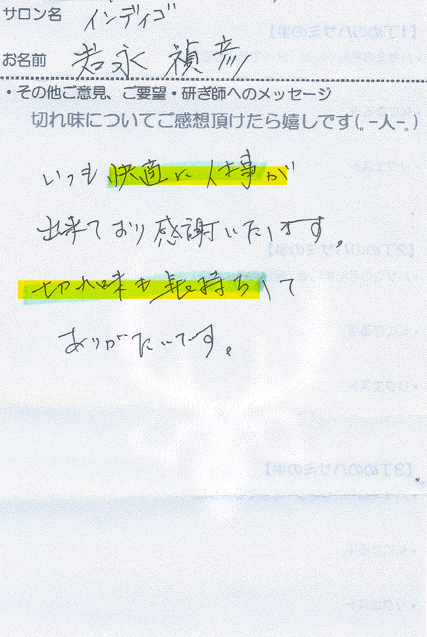 サロン名 インディゴ
お名前 若永 禎彦
・その他ご意見、ご要望・研ぎ師へのメッセージ
切れ味についてご感想頂けたら嬉しです(｡-人-｡)
いつも快適に仕事が
出来ており感謝いたします。
切れ味も長持ちして
ありがたいです。